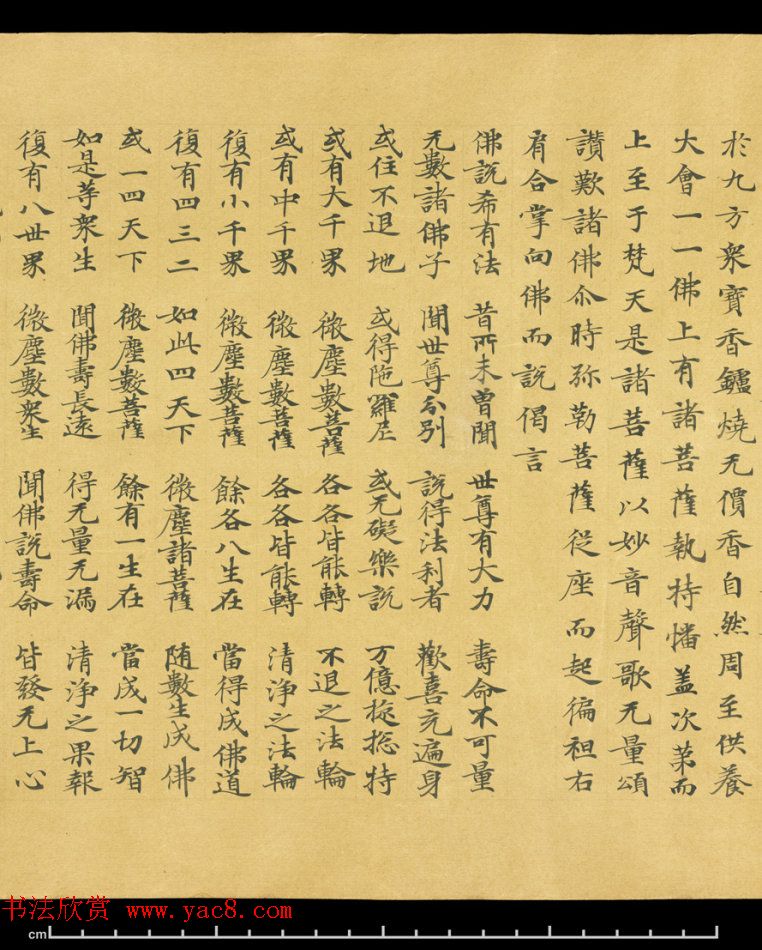 於九方衆寶香鑪燒无價香自然周至供養
大會一一佛上有諸菩薩執持幡盖次第而
上至于梵天是諸菩薩以妙音聲歌无量頌
讚歎諸佛尒時弥勒菩薩從座而起徧袒右
肩合掌向佛而說偈言
佛說希有法 昔所未曾聞 世尊有大力 壽命不可量
无數諸佛子 聞世尊分別 說得法利者 歡喜充遍身
或住不退地 或得陁羅尼 或无礙樂說 万億旋揔持
或有大千界 微塵數菩薩 各各皆能轉 不退之法輪
或有中千界 微塵數菩薩 各各皆能轉 清淨之法輪
復有小千界 微塵數菩薩 餘各八生在 當得成佛道
復有四三二 如此四天下 微塵諸菩薩 随數生成佛
或一四天下 微塵數菩薩 餘有一生在 當成一切智
如是等衆生 聞佛壽長遠 得无量无漏 清淨之果報
復有八世界 微塵數衆生 聞佛說壽命 皆發无上心
书法欣赏 www.yac8.com
cm